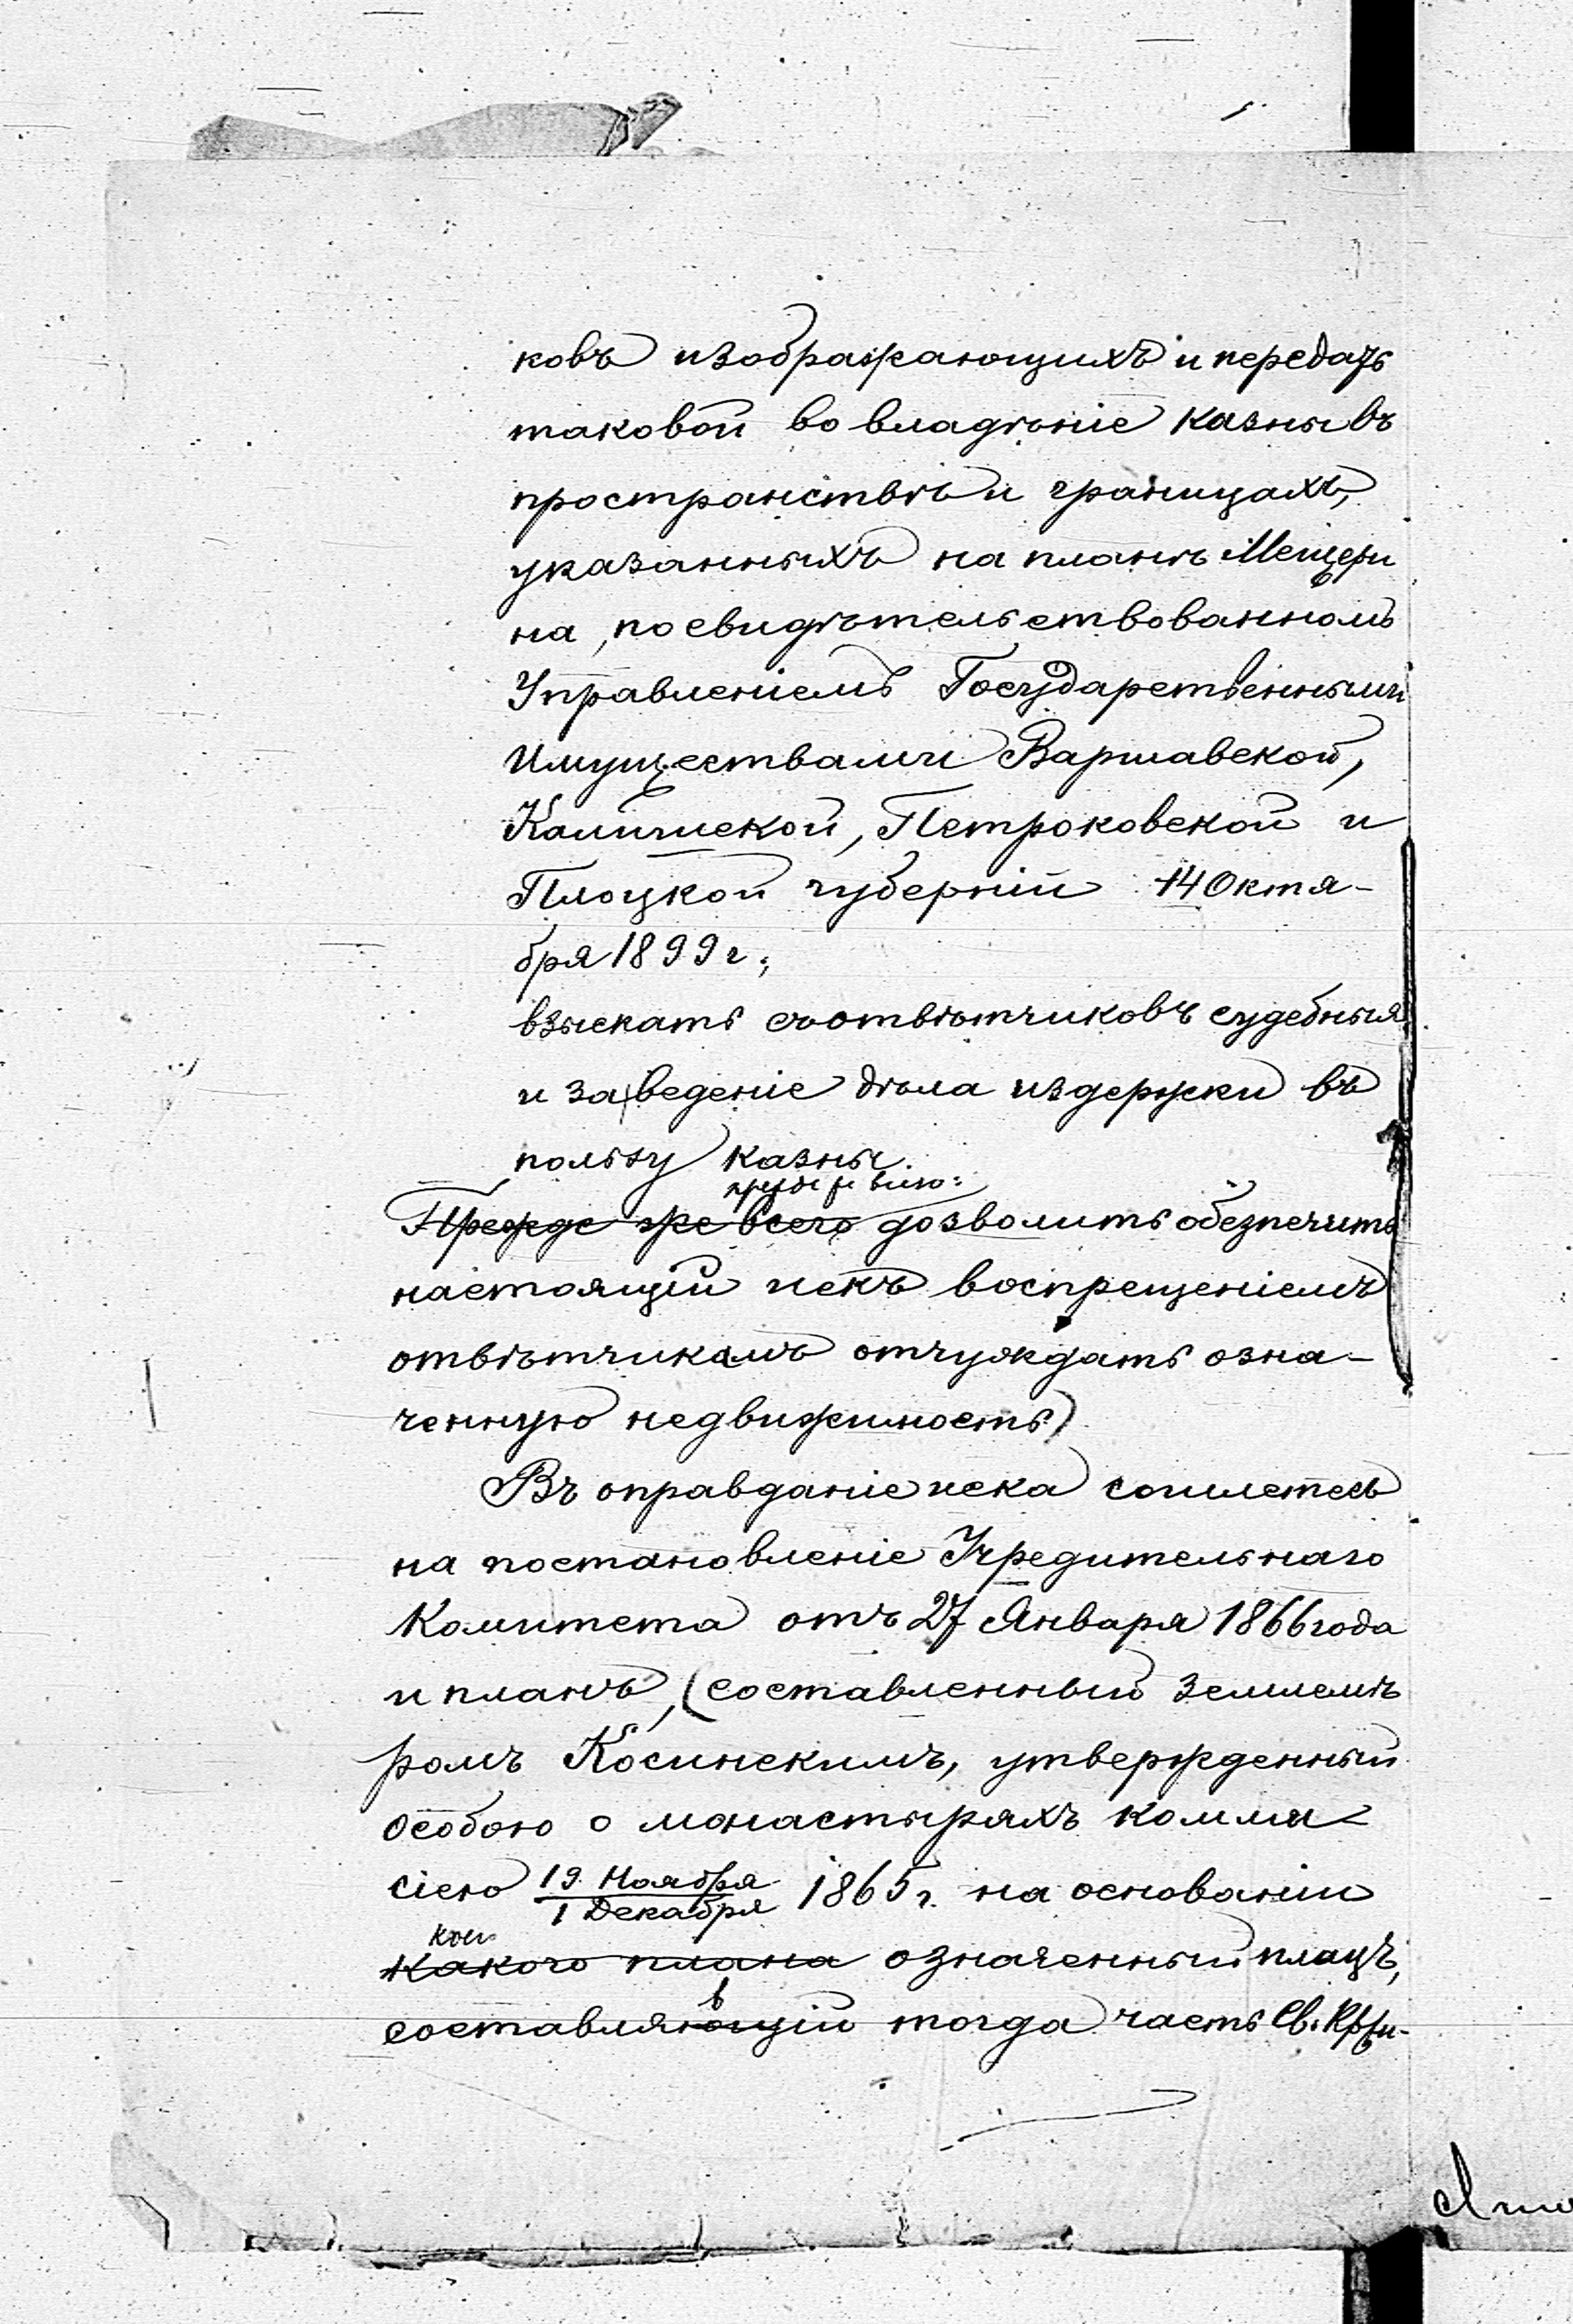 ковъ изображающихъ и передать
таковой во владѣніе казны въ
пространствѣ и границахъ,
указанныхъ на планѣ Мещери
на, посвидѣтельствованномъ
Управленіемъ Государственными
Имуществами Варшавской,
Калишской, Петроковской и
Плоцкой губерній 14 Октя-
бря 1899 г.;
взыскать съ отвѣтчиковъ судебныя
и за веденіе дѣла издержки въ
пользу казны.
прежде всего:
Прежде же всего дозволить обезпечить
настоящій искъ воспрещеніемъ
отвѣтчикамъ отчуждать озна-
ченную недвижимость)
Въ оправданіе иска сошлетесь
на постановленіе Учредительнаго
Комитета отъ 27 Января 1866 года
и планъ, (составленный землемѣ
ромъ Косинскимъ, утвержденный
особою о монастыряхъ комми-
сіею 19 Ноября / 1 Декабря 1865 г. на основаніи
коего
какого плана означенный плацъ,
в
составляющій тогда часть Св.